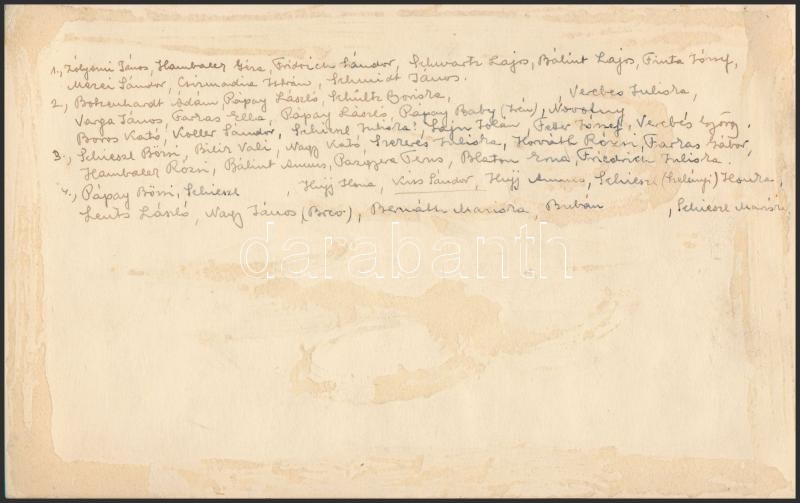 1., Zólyomi János, Hambalek Géza, Fridrich Sándor, Schwartz Lajos, Bálint Lajos, Finta József,
Mezei Sándor, Csizmadia István, Schmidt János.
2., Botzenhardt Ádám, Pápay László, Schültz Boriska, Verebés Juliska,
Varga János, Farkas Ella, Pápay László, Pápay Baby (Irén), Novotny
Boros Kató, Koller Sándor, Schieszl Juliska, Sajn Zoltán, Fehér József, Verebés György.
3., Schieszl Bözsi, Bilir Vali, Nagy Kató, Szekeres Juliska, Horváth Rózsi, Farkas Gábor,
Hambalek Rózsi, Bálint Annus, Pargyere Terus, Blaton Erna, Friedrich Juliska.
4., Pápay Bözsi, Schieszl , Hujj Ilona, Kiss Sándor, Hujj Annus, Schieszl (Szelényi) Honka,
Lents László, Nagy János (Boco), Bernáth Mariska, Buban , Schieszl Mariska
darabanth